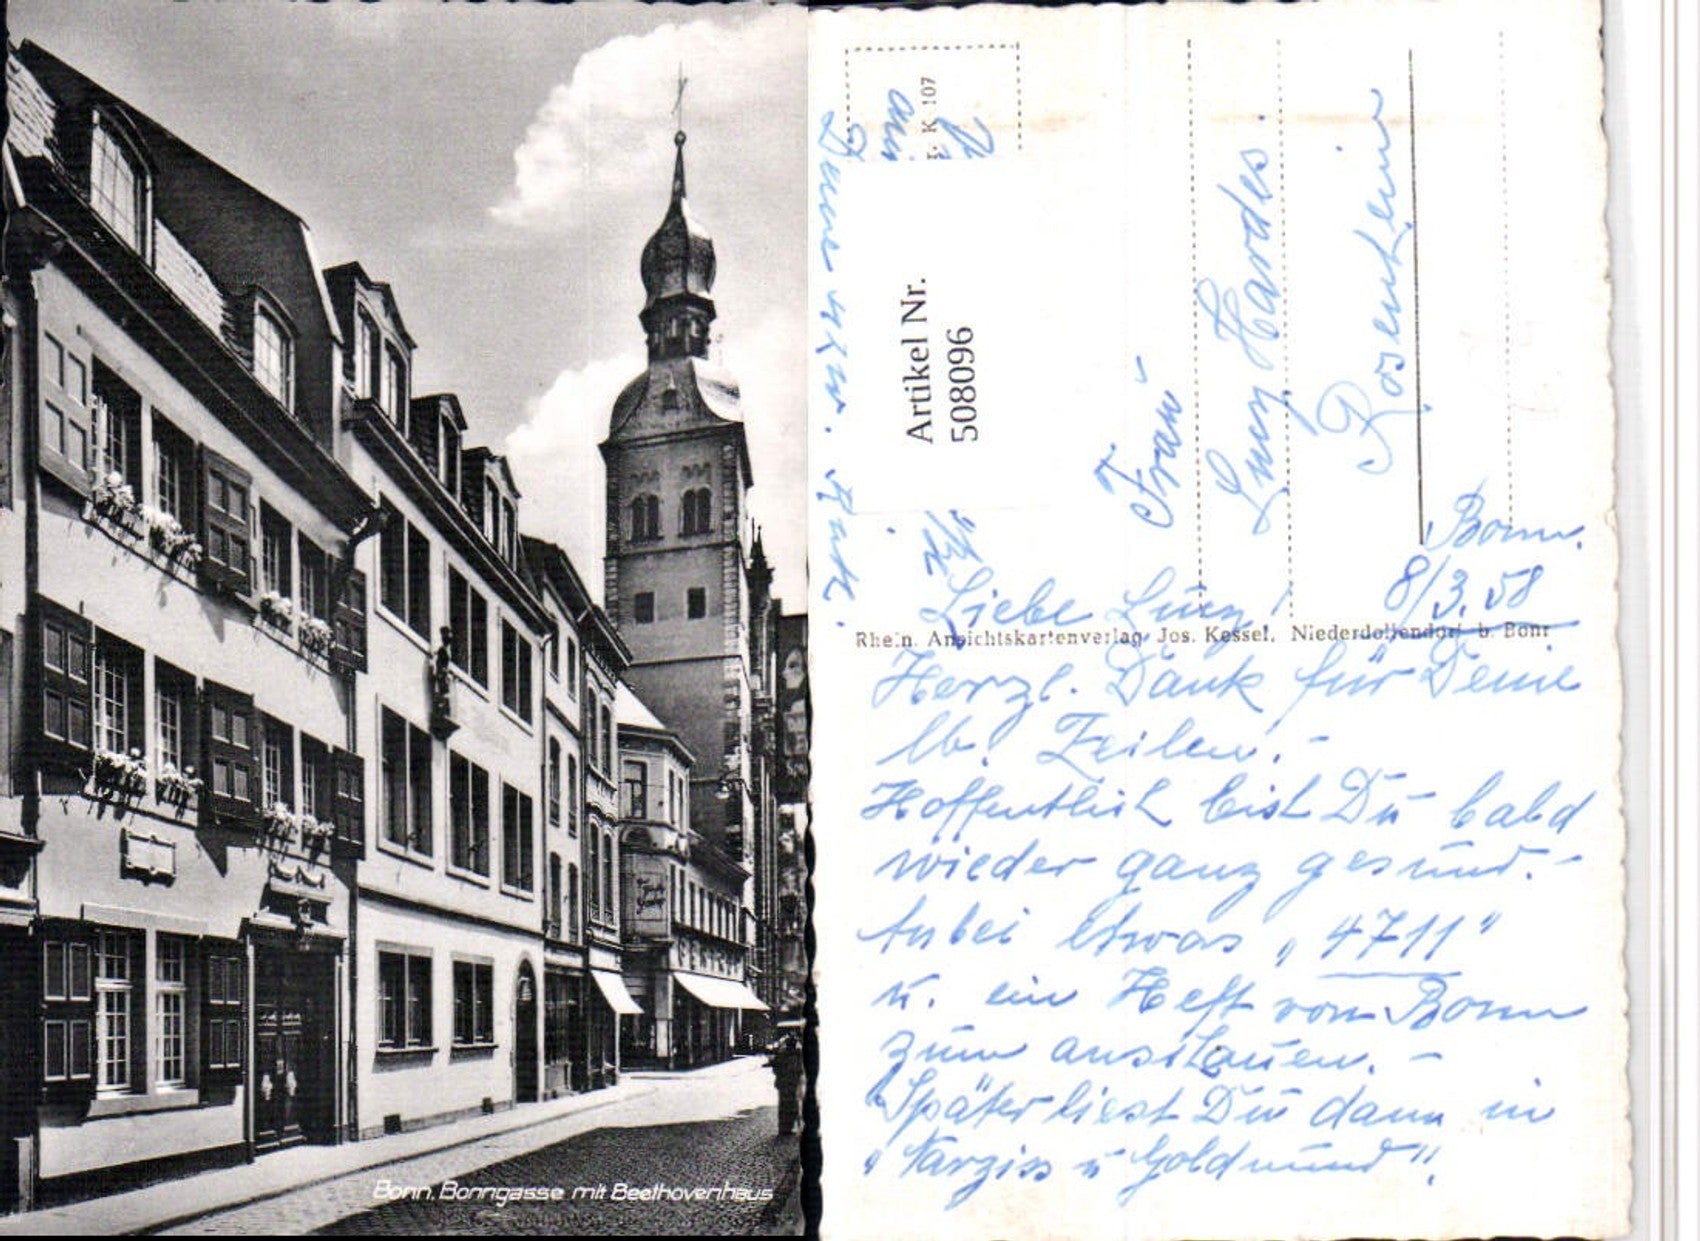 Bonn, Bonngasse mit Beethovenhaus
K 107
Artikel Nr.
508096
Frau
Lucy Hardes.
Rosenheim
Bonn.
8/3.58
Liebe Lucy!
Rhein. Ansichtskartenverlag Jos. Kessel, Niederdollendorf b. Bonn
Herzl. Dank für Deine
lb. Zeilen.-
Hoffentlich bist Du bald
wieder ganz gesund.-
Anbei etwas „4711"
u. ein Heft von Bonn
zum anschauen. -
Später liest Du dann in
„Narziss u Goldmund".
Deine